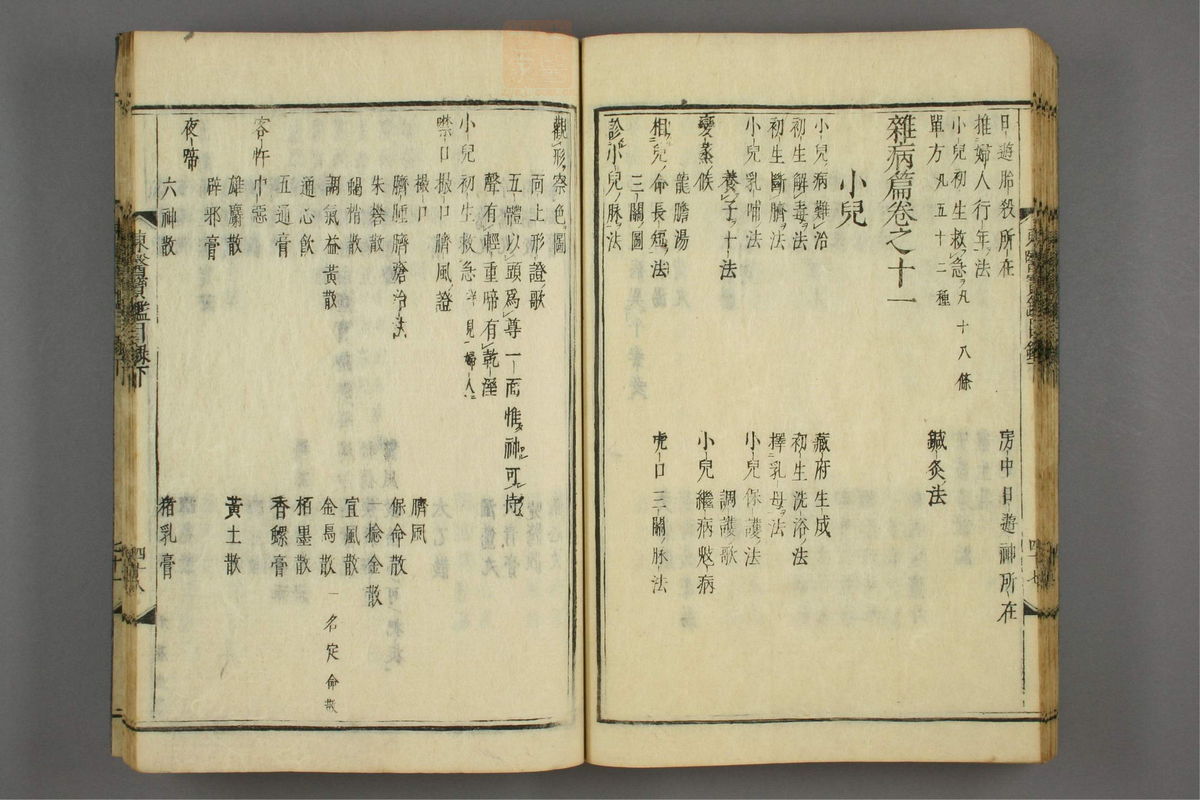 日遊胎殺所在
房中日遊神所在
推婦人行年法
小兒初生救急 凡十八條
單方 凡五十二種
鍼灸法
雜病篇卷之十一
小兒
小兒病難治
藏府生成
初生解毒法
初生洗浴法
初生斷臍法
擇乳母法
小兒乳哺法
小兒保護法
養子十法
調護歌
變蒸候
小兒繼病鬾病
龍膽湯
相兒命長短法
虎口三關脉法
三關圖
診小兒脉法
觀形察色圖
面上形證歌
五體以頭爲尊一面惟神可恃
聲有輕重啼有乾溼
小兒初生救急 詳見婦人
噤口撮口臍風證
撮口
臍風
臍腫臍瘡治法
保命散
朱蓉散
撿金散
蝎梢散
宜風散
調氣益黃散
金烏散 一名定命散
通心飲
栢墨散
五通膏
香螺膏
客忤
中惡
雄麝散
黃土散
辟邪膏
夜啼
六神散
猪乳膏
東醫寶鑑目錄下
四十八